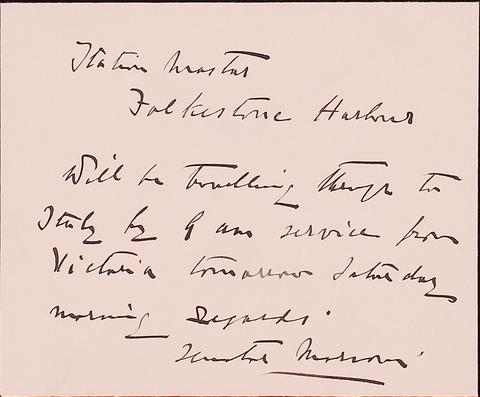 Station Master
Folkestone Harbour
Will be travelling through to
Italy by 9 am service from
Victoria tomorrow Saturday
morning regards.
Senatore Marconi